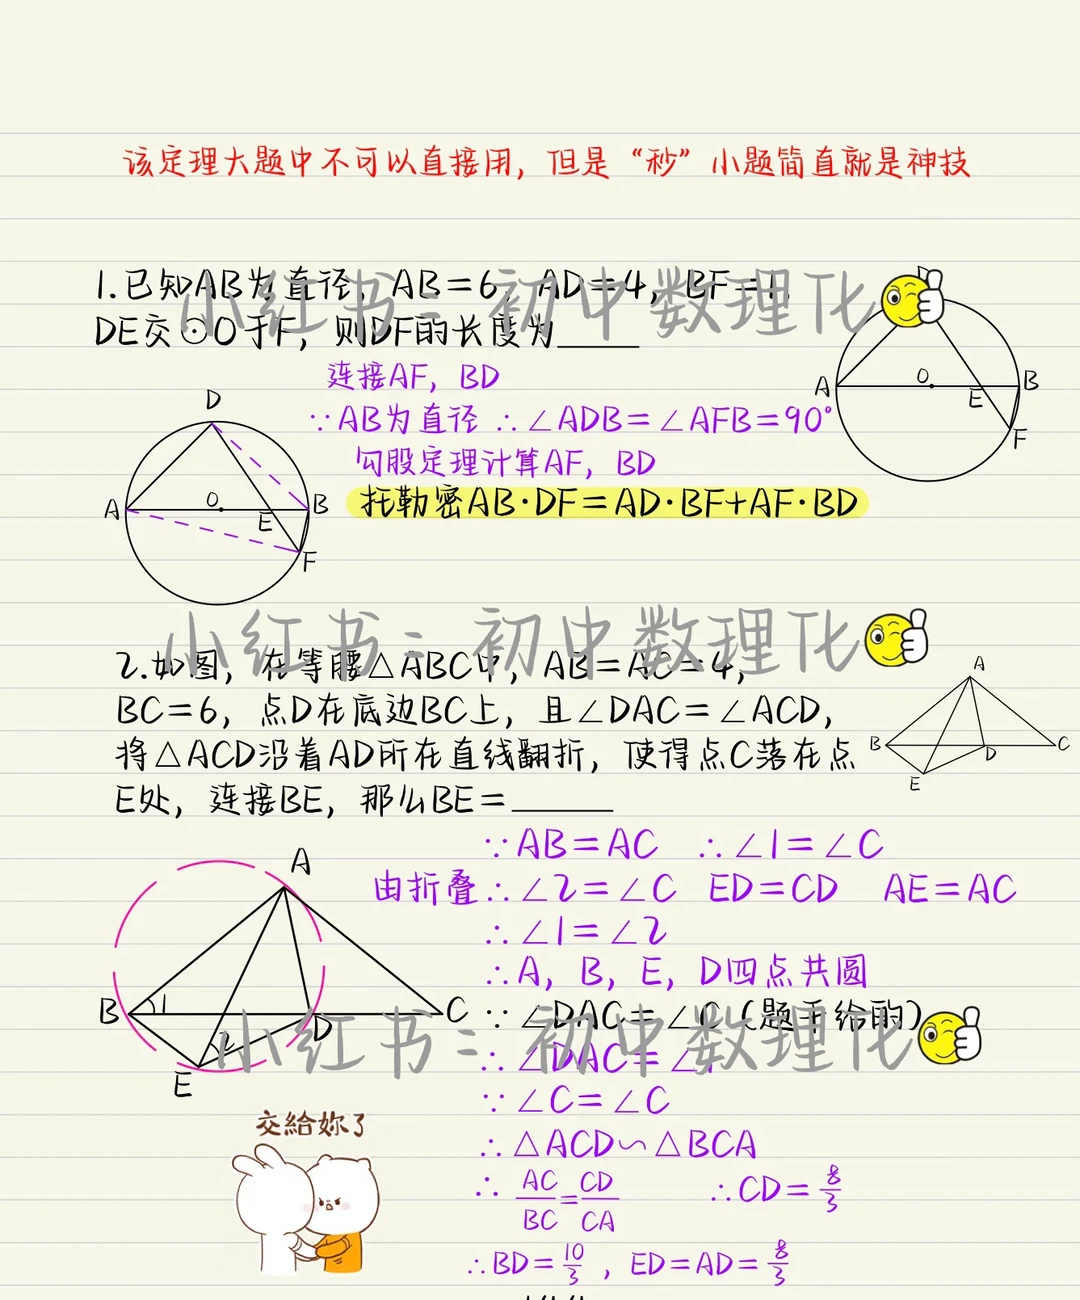 该定理大题中不可以直接用，但是“秒”小题简直就是神技
1.已知AB为直径，AB=6，AD=4，BF=1，
DE交⊙O于F，则DF的长度为____
A
O
B
E
F
连接AF，BD
∵AB为直径 ∴∠ADB=∠AFB=90°
勾股定理计算AF，BD
托勒密AB·DF=AD·BF+AF·BD
D
A
O
B
E
F
小红书：初中数理化
小红书：初中数理化
2.如图，在等腰△ABC中，AB=AC=4，
BC=6，点D在底边BC上，且∠DAC=∠ACD，
将△ACD沿着AD所在直线翻折，使得点C落在点
E处，连接BE，那么BE=____
A
B
D
C
E
∵AB=AC ∴∠1=∠C
由折叠∴∠2=∠C ED=CD AE=AC
∴∠1=∠2
∴A，B，E，D四点共圆
∵∠DAC=∠C（题干给的）
∴∠DAC=∠1
∵∠C=∠C
∴△ACD∽△BCA
∴AC/BC=CD/CA ∴CD=8/3
∴BD=10/3，ED=AD=8/3
A
B
1
C
D
2
E
小红书：初中数理化
交給妳了